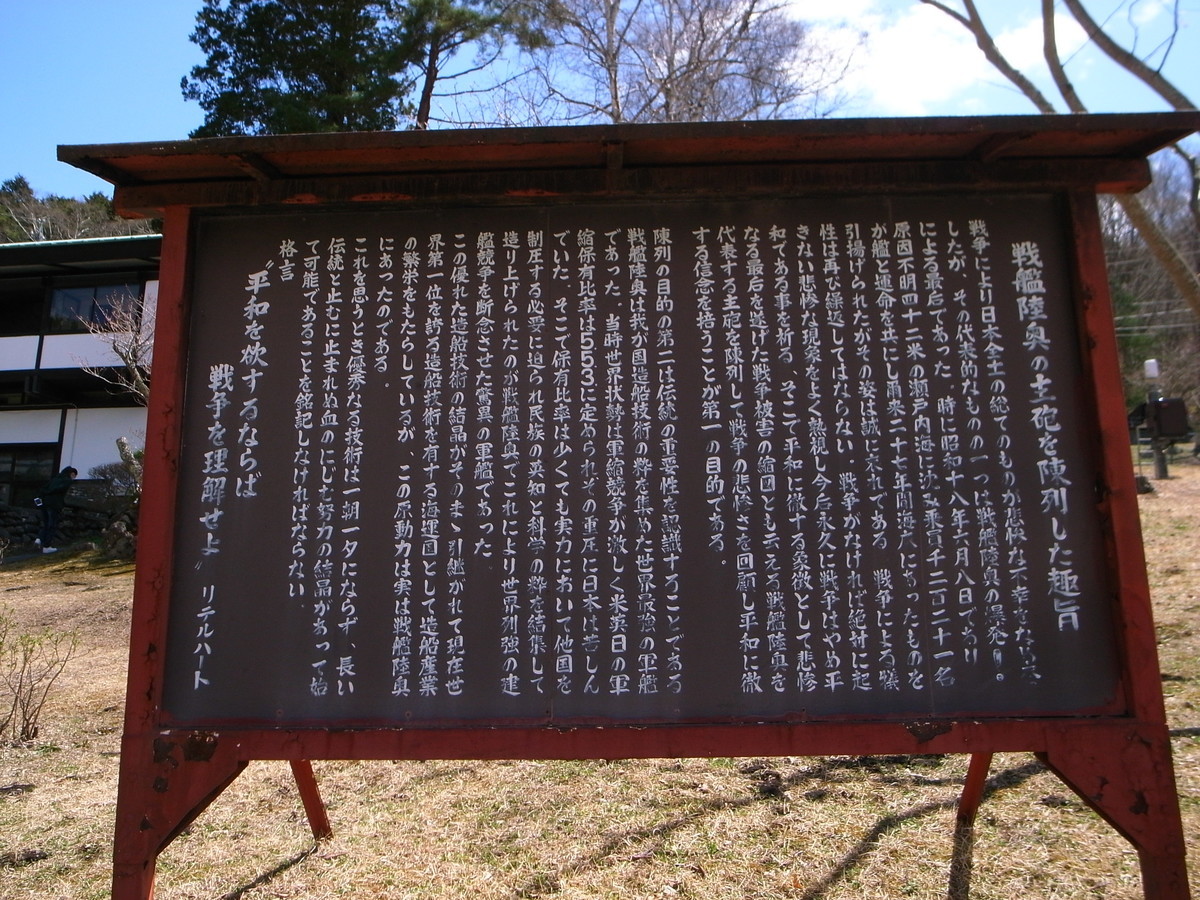 戦艦陸奥の主砲を陳列した趣旨
戦争により日本全土の総てのものが悲惨な不幸をな
したが、その代表的なものの一つは戦艦陸奥の爆発
による最后であった。時に昭和十八年六月八日であり
原因不明四十二米の瀬戸内海に沈み乗員千二百二十一名
が艦と運命を共にし爾来二十七年間海底にあったものを
引揚げられたがその姿は誠に哀れである 戦争による犠
性は再び繰返してはならない 戦争がなければ絶対に起
きない悲惨な現象をよく熟視し今后永久に戦争はやめ平
和である事を祈る、そこで平和に徹する象徴として悲惨
なる最后を遂げた戦争被害の縮図とも云える戦艦陸奥を
代表する主砲を陳列して戦争の悲惨さを回顧し平和に徹
する信念を培うことが第一の目的である。
陳列の目的の第二は伝統の重要性を認識することである
戦艦陸奥は我が国造船技術の粋を集めた世界最強の軍艦
であった、当時世界状勢は軍縮競争が激しく米英日の軍
縮保有比率は5 5 3に定められその重圧に日本は苦しん
でいた、そこで保有比率は少くても実力において他国を
制圧する必要に迫られ民族の英知と科学の粋を結集して
造り上げられたのが戦艦陸奥でこれにより世界列強の建
艦競争を断念させた驚異の軍艦であった
この優れた造船技術の結晶がそのまゝ引継がれて現在世
界第一位を誇る造船技術を有する海運国として造船産業
の繁栄をもたらしているが、この原動力は実は戦艦陸奥
にあったのである。
これを思うとき優秀なる技術は一朝一夕にならず、長い
伝統と止むに止まれぬ血のにじむ努力の結晶があって始
て可能であることを銘記しなければならない、
格言
〝平和を欲するならば
戦争を理解せよ〟 リテルハート